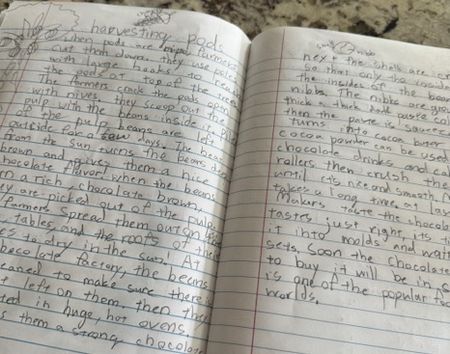 harvesting pods
When pods are ripe, farmers
cut them down. they use poles
with large hooks to reach
The pods at top of the
The farmers crack the pods open
with nives. they scoop out the
pulp with the beans inside it. Piles
of the pulp beans are left
outside for a few days. The heat
from the sun turns the beans dark
brown and gives them a nice
chocolate flavor when the beans
a rich chocolate brown,
they are picked out of the pulp.
farmers spread them out on
tables, and the roofs of their
to dry in the sun! At
chocolate factory, the beans
cleaned to make sure there is
left on them, then they
in huge, hot ovens.
them a strong chocolate
nibbs
next the shells are
so that only the
the insides of the bean
nibbs. The nibbs are
thick a thick dark paste
then the paste is
Turns into cocoa butter
cocoa powder can be used
chocolate drinks and
rollers then crush the
until its nice and smooth.
takes a long time at
Makers taste the
tastes just right, its
it into molds and
sets. Soon the Chocolate
to buy it will be in
is one of the popular
worlds.